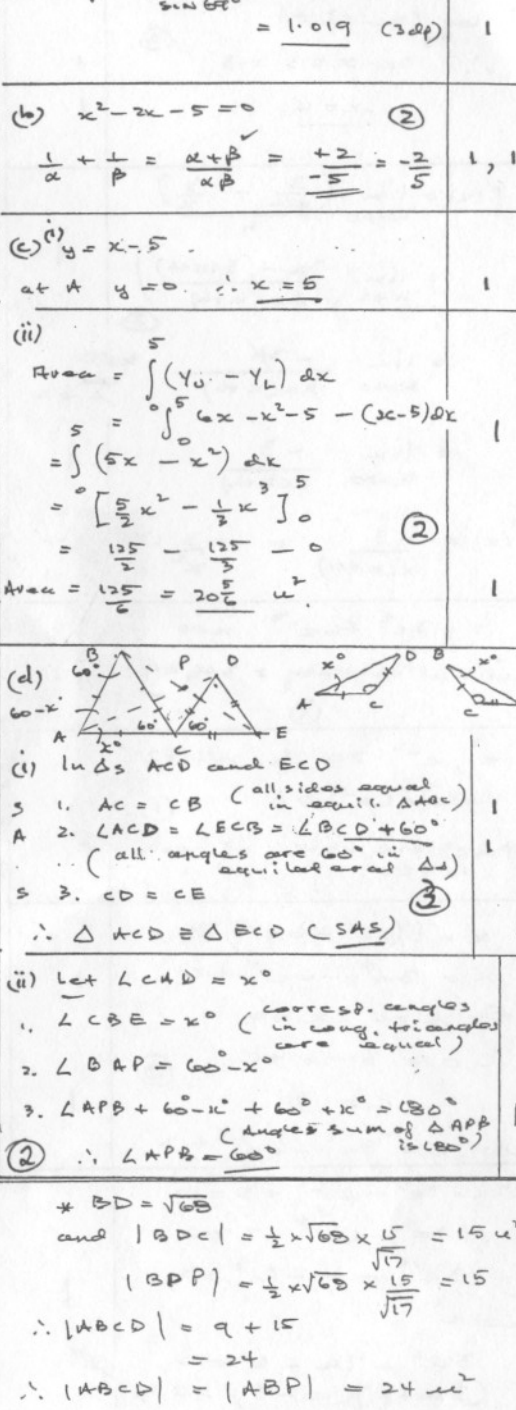 = 1.019 (3dp) 1
(b) x² - 2x - 5 = 0 ②
1/α + 1/β = α+β/αβ ✓ = +2/-5 = -2/5 1, 1
(c) (i) y = x - 5
at A y = 0 ∴ x = 5 1
(ii)
Area = ∫ (Yu - YL) dx
= ∫₀⁵ 6x - x² - 5 - (x-5) dx 1
= ∫₀⁵ (5x - x²) dx
= [5/2 x² - 1/3 x³]₀⁵ ②
= 125/2 - 125/3 - 0
Area = 125/6 = 20 5/6 u² 1
(d) B P D D B
60° x° x°
60-x 60° 60° A C C
A x° C E
(i) In Δs ACD and ECD
S 1. AC = CB (all sides equal in equil. ΔABC) 1
A 2. ∠ACD = ∠ECB = ∠BCD + 60° 1
(all angles are 60° in equilateral Δs)
S 3. CD = CE ③
∴ Δ ACD ≡ Δ ECD (SAS)
(ii) Let ∠CAD = x°
1. ∠CBE = x° (corresp. angles in cong. triangles are equal)
2. ∠BAP = 60° - x°
3. ∠APB + 60° - x° + 60° + x° = 180°
(Angles sum of Δ APB is 180°)
② ∴ ∠APB = 60°
* BD = √68
and |BDC| = 1/2 × √68 × 15/√17 = 15 u²
|BDP| = 1/2 × √68 × 15/√17 = 15
∴ |ABCD| = 9 + 15
= 24
∴ |ABCD| = |ABP| = 24 u²